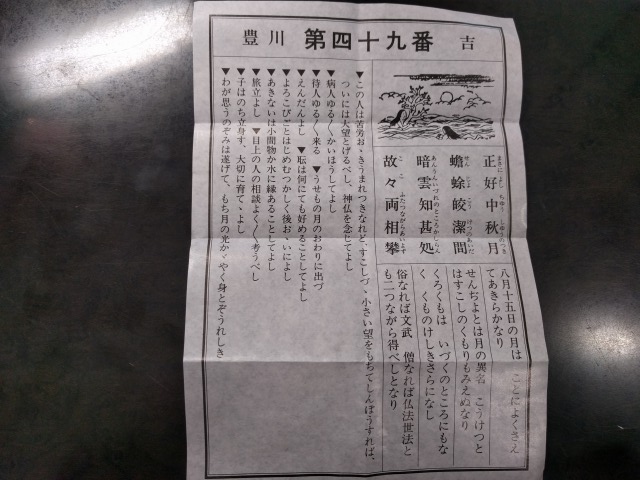 豊川 第四十九番 吉
正好中秋月
蟾蜍皎潔間
暗雲知甚処
故々両相攀
八月十五日の月は ことによくさえ
てあきらかなり
せんぢよとは月の異名 こうけつと
はすこしのくもりもみえぬなり
くろくもは いづくのところにもな
く くものけしきさらになし
俗なれば文武 僧なれば仏法世法と
も二つながら得べしとなり
▼この人は苦労おゝきうまれつきなれど、すこしづゝ小さい望をもちてしんぼうすれば、
ついには大望とげるべし、神仏を念じてよし
▼病人ゆる〳〵かいほうしてよし
▼待人ゆる〳〵来る ▼うせもの月のおわりに出づ
▼えんだんよし ▼転は何にても好めることしてよし
▼よろこびごとはじめむつかしく後おゝいによし
▼あきないは小間物か水に縁あることしてよし
▼旅立よし ▼目上の人の相談よく〳〵考うべし
▼子はのち立身す、大切に育てゝよし
▼わが思うのぞみは遂げて、もち月の光かゞやく身とぞうれしき